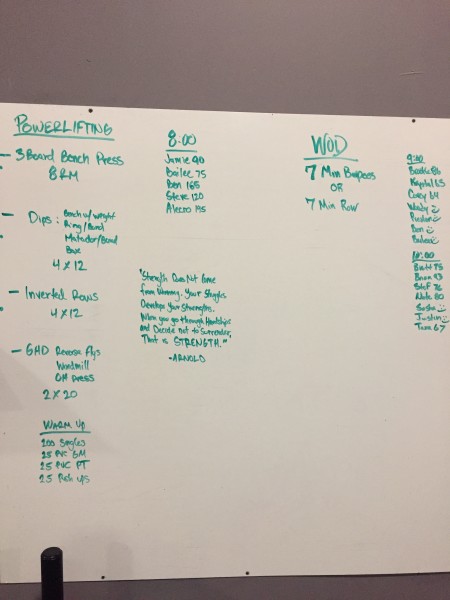 POWERLIFTING
- 3 Board Bench Press
8RM
- Dips: Bench w/ weight
Ring/Band
Matador/Band
Box
4 x 12
- Inverted Rows
4 x 12
- GHD Reverse Flys
Windmill
OH Press
2 x 20
WARM UP
200 Singles
25 PVC GM
25 PVC PT
25 Push ups
8:00
Jamie 90
Bailee 75
Ben 165
Steve 120
Alezzo 195
"Strength Does Not Come
from Winning. Your Struggles
Develop Your Strengths.
When you go through Hardships
and Decide not to Surrender,
That is STRENGTH."
-ARNOLD
WOD
7 Min Burpees
OR
7 Min Row
9:00
Krystal 65
Corey 64
Wendy
Ben
10:00
Brett 95
Brian 93
Stef 76
Nate 80
Sasha
Justin
Tara 67